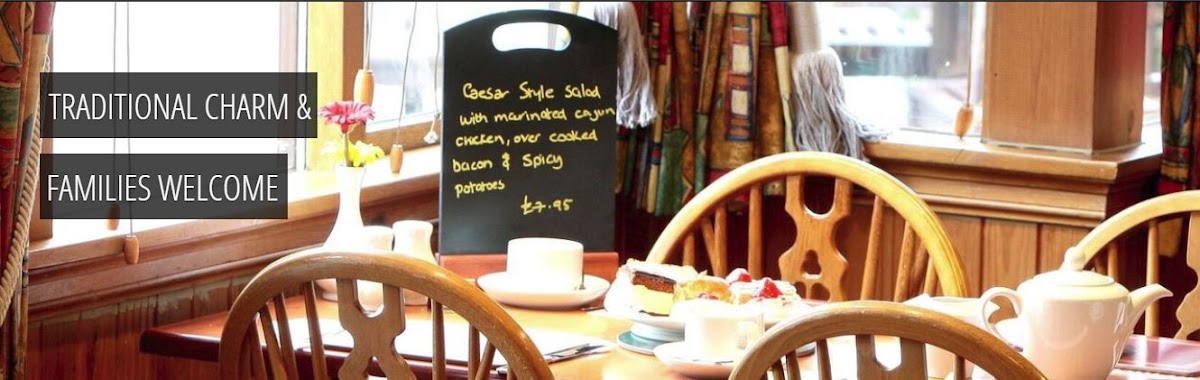 TRADITIONAL CHARM &
FAMILIES WELCOME
Caesar Style Salad
with marinated cajun
chicken, over cooked
bacon & Spicy
potatoes
£7.95